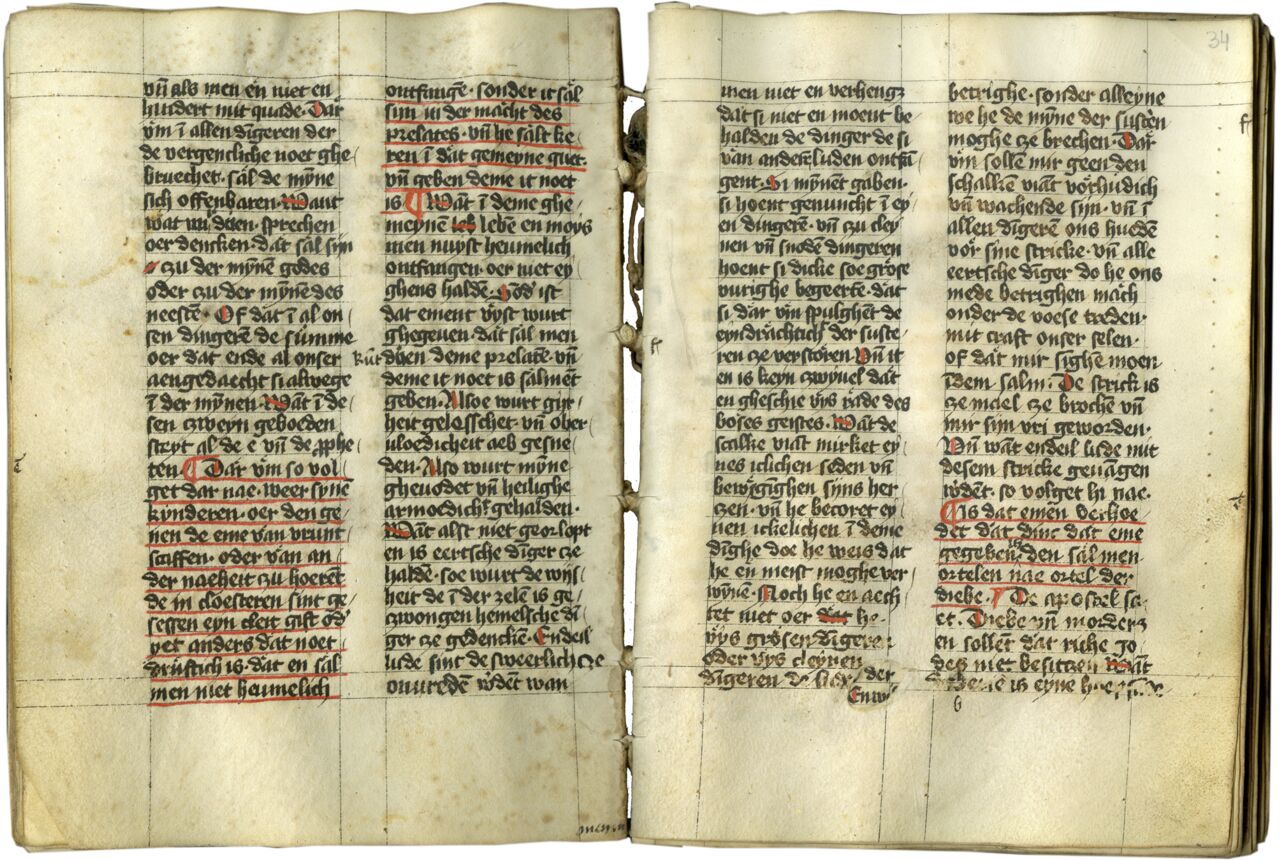 vn̄ als men en niet en
hindert mit quade. Dar
vm ī allen dīgeren der
de vergencliche noet ghe
bruechet. sal de mȳne
sich offenbaren. Want
wat wi duen. sprechen
oer dencken. dat sal sijn
czu der mȳnē gedes
oder czu der mȳnē des
neestē. Of dat ī al on
sen dingerē de sūmme
oer dat ende al onser
aengedaecht si alwege
ī der mȳnen. Wāt ī de
sen czweyn geboeden
steyt al de e vn̄ de prophe
ten. Dar vm so vol
get dar nae. weer syne
kynderen. oer den ge
nen de eme van vrunt
scaffen. oder van an
der naeheit czu hoerent
de in cloesteren sint ge
sessen eyn cleit gift od
yet anders dat noet
drufftich is. dat en sal
men niet heumelich
ontfangē. sonder it sal
sijn in der macht des
prelates. vn̄ he salt ke
ren ī dat gemeyne guet.
vn̄ geben deme it noet
is. Wāt ī deme ghe
meynē leben en moys
men nuyst heumelich
ontfangen. oer niet ey
ghens haldē. ist
dat ement vyst wurt
ghegeuen. dat sal men
kūt duen deme prelatē. vn̄
deme it noet is salmēt
geben. Alsoe wurt gir
heit gelesschet. vn̄ ober
vloedicheit aeb gesne
den. Also wurt mȳne
gheuodet vn̄ heilighe
armoedicht gehalden.
Wāt alst niet georlopt
en is eertsche dīger cze
haldē. soe wurt de wijs
heit de ī der zelen is ge
czwongen hemelsche dī
ger cze gedenckē. Endeil
lude sint de sweerlich cze
onvredē wdēt wan
men niet en verhengz
dat si niet en moent be
halden de dinger de si
van anderē luden ontfā
gent. Si mȳnēt gaben.
si hoent genuucht ī ey
en dingerē. vn̄ czu cley
nen vn̄ snodē dingeren
hoent si dicke soe grose
vurighe begeerte. dat
si dar vm spulghēt de
eyndrachtich der suste
ren cze verstorēn. Vn̄ it
en is keyn czwyuel dat
en gheschie vys rade des
boses geistes. Want de
scalke viāt mirket ey
nes iclichen seden vn̄
bewegīghen sijns her
czen. vn̄ he becoret ey
nen ickelichen ī deme
dīghe doe he weis dat
he en meist moghe ver
wȳnē. Noch he en aech
tet niet oer dat he
vys grosen dīgeren
oder vys cleynen
dīgeren de suste der
betrighe. sonder alleyne
we he de mȳne der sustēn
moghe cze brechen. Dar
vm sollē mir geen den
schalkē viāt vorhudich
vn̄ wachende sijn. vn̄ ī
allen dīgerē ons huedē
vor sine stricke. vn̄ alle
eertsche dīger do he ons
mede betrighen mach
onder de voese treden.
mit craft onser selen.
of dat mir sighē moen
ī dem salm. De strick is
cze mael cze brochē vn̄
mir sijn vri geworden.
Vn̄ wāt endeil lude mit
desem stricke geuāgen
wdēt. so volget hi nae.
Is dat emen verhoe
det dat dinc dat eme
gegeben is. den sal men
ortelen nae ortel der
diebe. De apostel sa
et. Diebe vn̄ morderz
en sollēt dat riche go
des niet besitzen. Wāt
is eyne
34